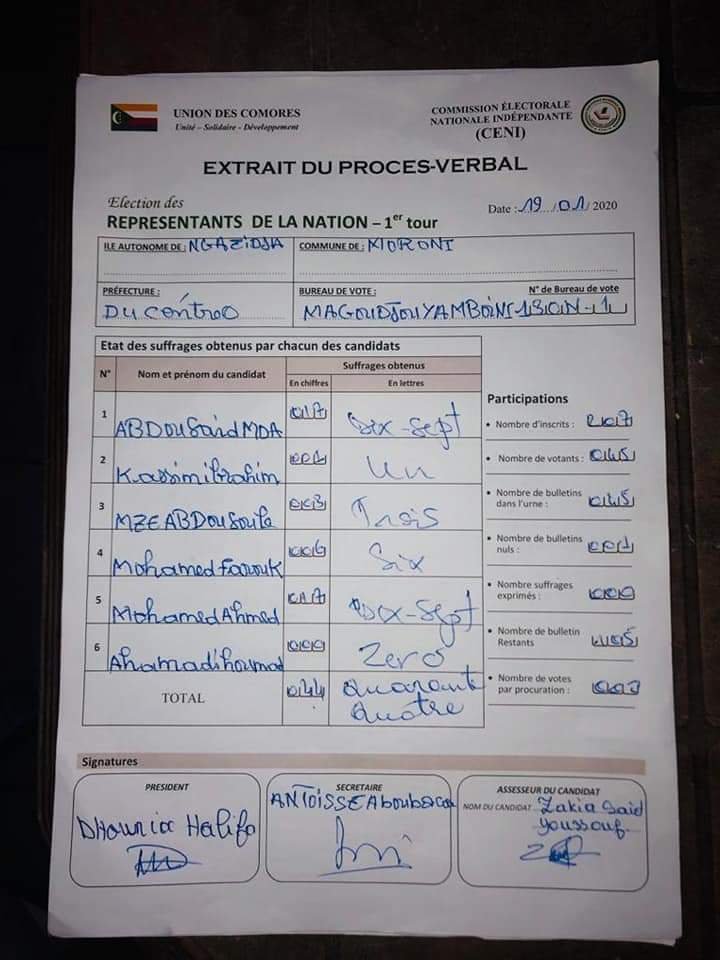 UNION DES COMORES
Unité – Solidaire - Développement
COMMISSION ÉLECTORALE
NATIONALE INDÉPENDANTE
(CENI)
EXTRAIT DU PROCES-VERBAL
Election des
REPRESENTANTS DE LA NATION – 1er tour
Date : 19 / 01 / 2020
ILE AUTONOME DE : NGAZIDJA
COMMUNE DE : MORONI
PRÉFECTURE :
Du Centre
BUREAU DE VOTE :
N° de Bureau de vote
MAGOUDJOU YAMBOINI
Etat des suffrages obtenus par chacun des candidats
N° Nom et prénom du candidat Suffrages obtenus
En chiffres En lettres
1 ABDOU Said MDA 017 Dix-Sept
2 Kassim ibrahim 001 Un
3 MZE ABDOU Soule 003 Trois
4 Mohamed Farouk 006 Six
5 Mohamed Ahmed 017 Dix-Sept
6 Ahamadi houmad 000 Zero
TOTAL 044 Quarante
Quatre
Participations
• Nombre d'inscrits : 207
• Nombre de votants : 045
• Nombre de bulletins
dans l'urne : 045
• Nombre de bulletins
nuls : 001
• Nombre suffrages
exprimés : 000
• Nombre de bulletin
Restants
• Nombre de votes
par procuration : 003
Signatures
PRESIDENT
Dhounia Halifa
SECRETAIRE
ANTOISSE Aboubacar
ASSESSEUR DU CANDIDAT
NOM DU CANDIDAT Zakia Said
Youssouf